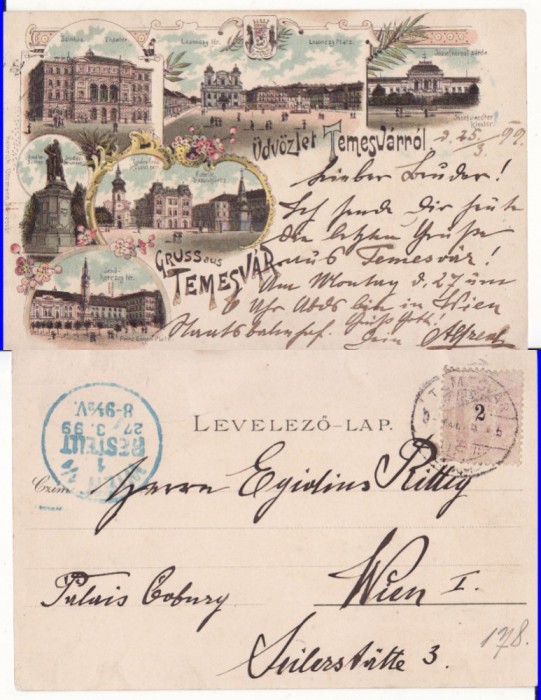 Losonczy tér.
Losonczy Platz.
Üdvözlet Temesvárról
d. 25/3 99!
Lieber Bruder!
Ich sende Dir heute
die letzten Grüße
aus Temesvár!
Am Montag d. 27 um
6 Uhr Abds bin in Wien
Staatsbahnhof. Grüß Gott!
Dein Alfred
GRUSS aus
TEMESVÁR
LEVELEZŐ-LAP.
BESTELLT
1
27 3. 99
8-9½V.
2
Czím
Herrn Egidius Rittig
Wien I.
Palais Coburg
Seilerstätte 3.
178.